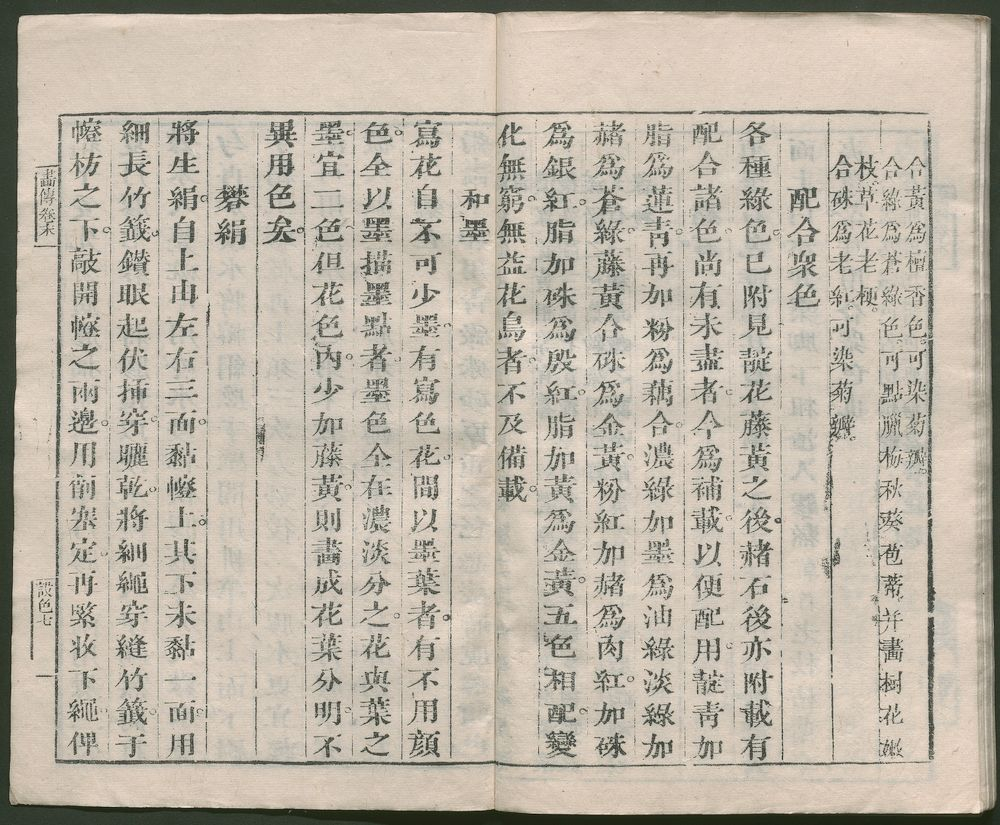 合黃為檀香色。可染菊瓣。
合綠為蒼綠色。可點臘梅秋葵苞蒂并畫樹花嫩
枝草花老梗。
合硃為老紅。可染菊瓣。
配合衆色
各種綠色。已附見靛花藤黃之後。赭石後亦附載有
配合諸色。尚有未盡者。今為補載以便配用。靛青加
脂為蓮青。再加粉為藕。合濃綠加墨為油綠。淡綠加
赭為蒼綠。藤黃合硃為金黃。粉紅加赭為肉紅。加硃
為銀紅。脂加硃為殷紅。脂加黃為金黃。五色相配。變
化無窮。無益花鳥者。不及備載。
和墨
寫花自不可少墨。有寫色花。間以墨葉者。有不用顔
色。全以墨描墨點者。墨色全在濃淡分之。花與葉之
墨。宜二色。但花色內。少加藤黃。則畫成花葉分明。不
異用色矣。
礬絹
將生絹。自上由左右三面。黏幢上。其下未黏一面。用
細長竹籤。鑽眼起伏。揷穿驪乾。將細繩穿縫竹籤于
幢枋之下。敲開幢之兩邊。用削塞定。再緊妝下繩。俾
畫傳 卷末
設色七